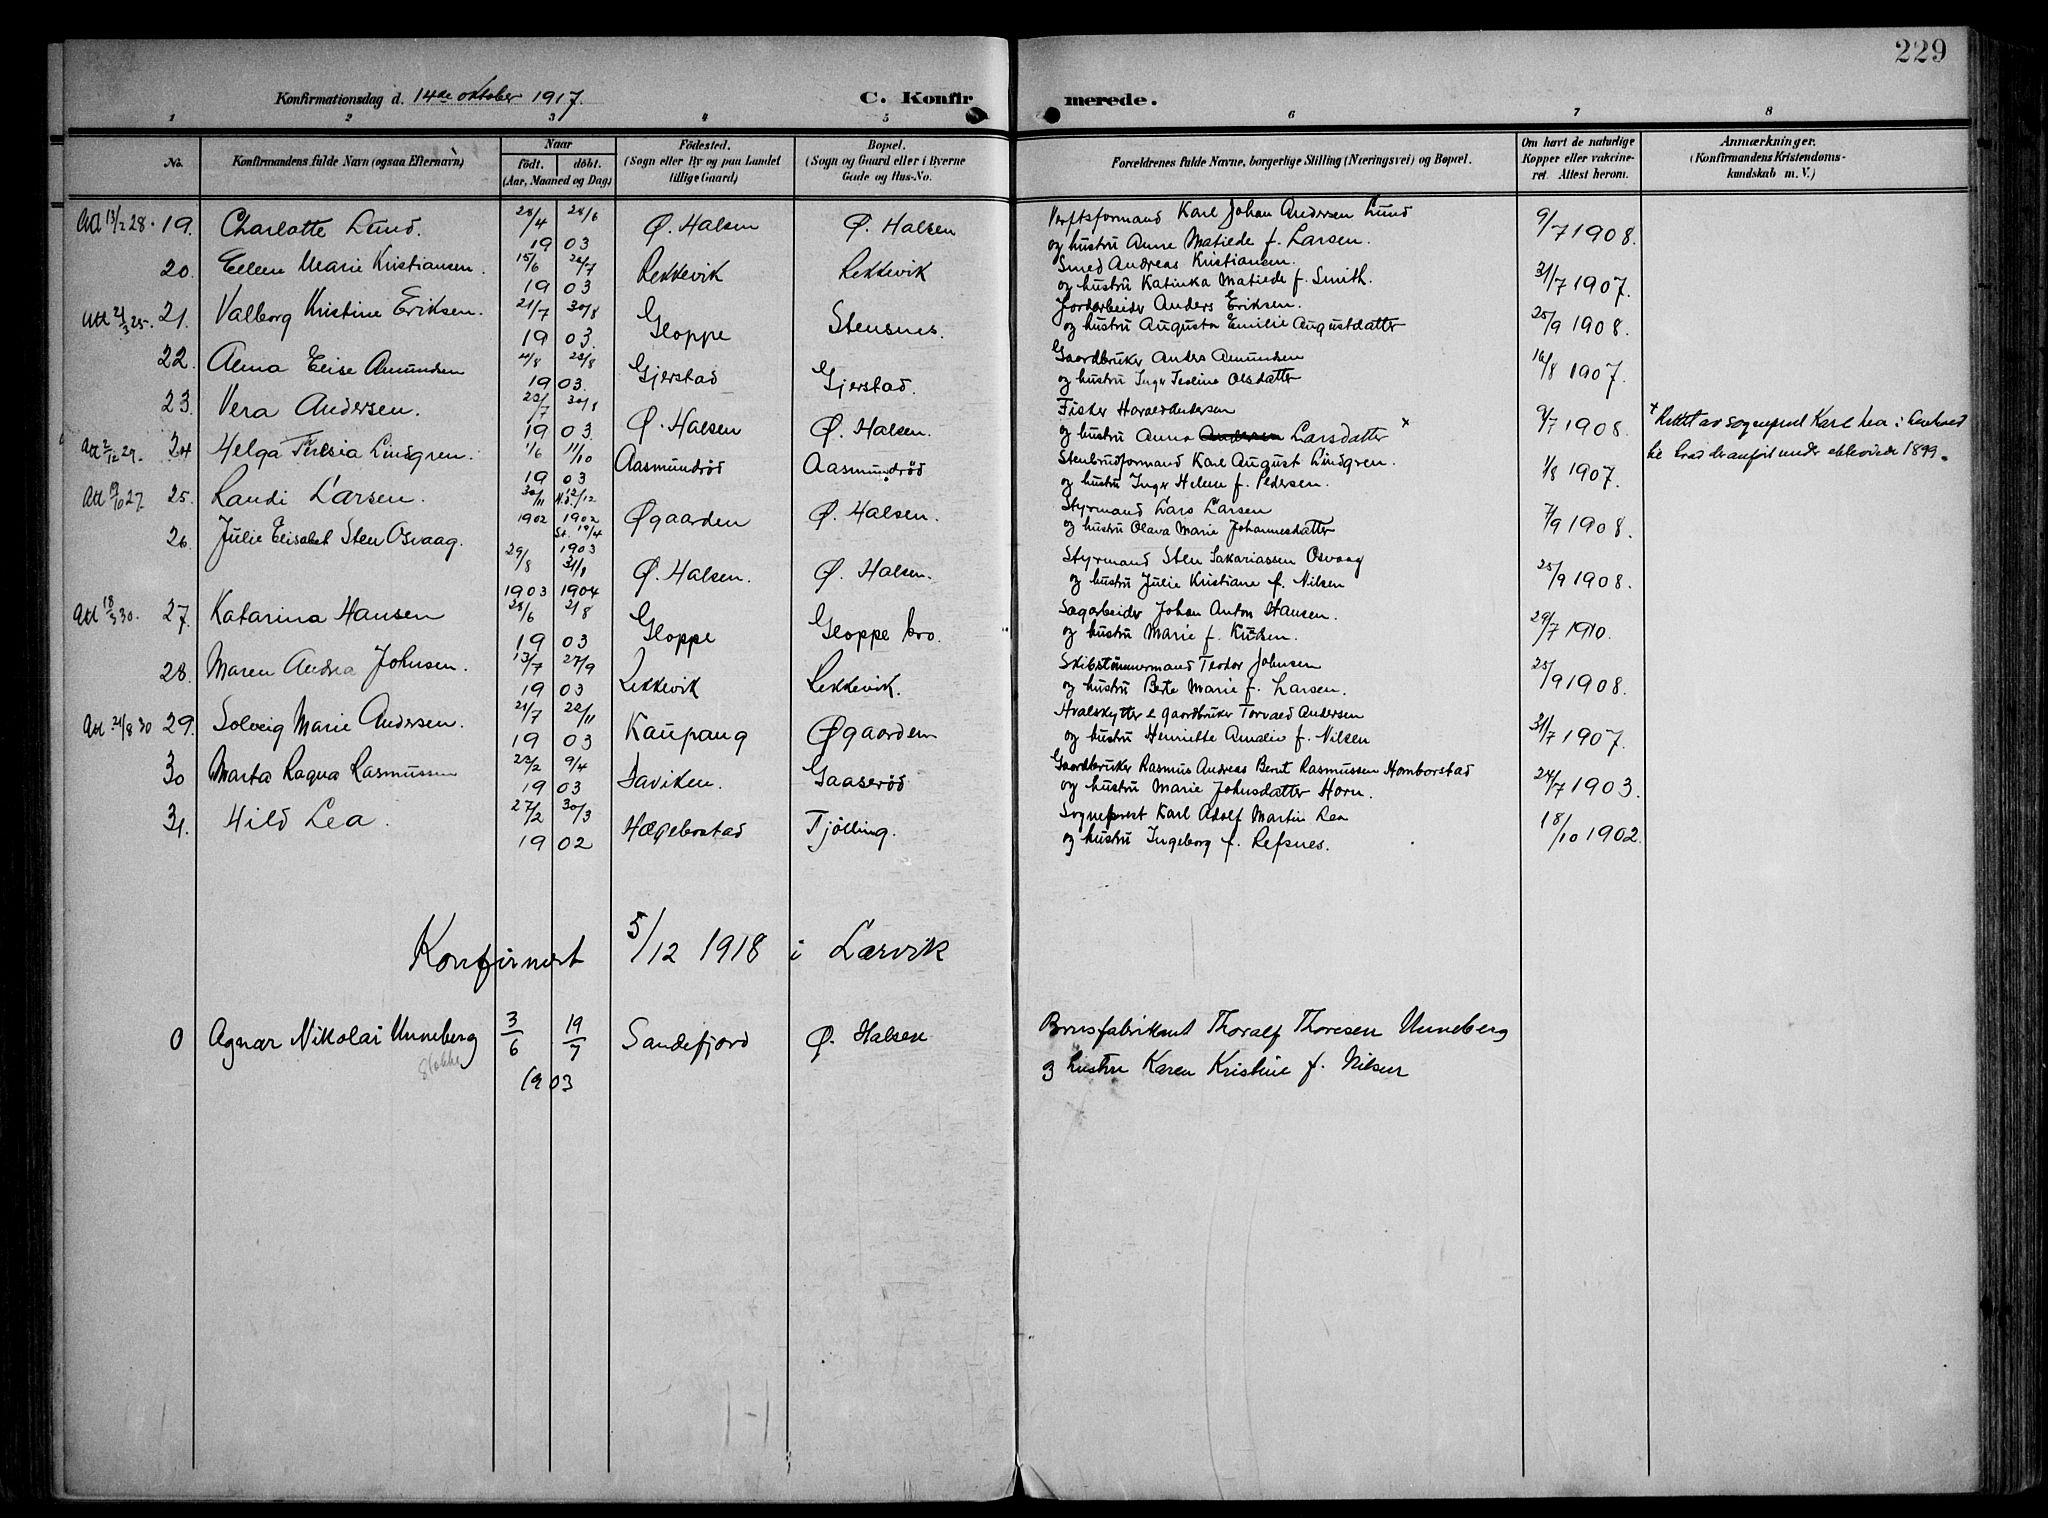 229
Konfirmationsdag d. 14de oktober 1917.
C. Konfirmerede.
1 2 3 4 5 6 7 8
No.
Konfirmandens fulde Navn (ogsaa Efternavn)
Naar
født. døbt.
(Aar, Maaned og Dag)
Födested.
(Sogn eller By og paa Landet
tillige Gaard)
Bopæl.
(Sogn og Gaard eller i Byerne
Gade og Hus-No.
Forældrenes fulde Navne, borgerlige Stilling (Næringsvei) og Bopæl.
Om havt de naturlige
Kopper eller vakcine-
ret. Attest herom.
Anmærkninger.
(Konfirmandens Kristendoms-
kundskab m. V.)
Att 13/2 28. 19. Charlotte Lund. 28/4 28/6 Ø. Halsen Ø. Halsen Verftsformand Karl Johan Andersen Lund 9/7 1908.
19 03 og hustru Anne Matilde f. Larsen.
20. Ellen Marie Kristiansen. 15/6 26/7 Rekkevik Rekkevik Smed Andreas Kristiansen. 31/7 1907.
19 03 og hustru Katinka Matilde f. Smith.
Att 21/3 25. 21. Valborg Kristine Eriksen. 21/7 30/8 Gloppe Stensnes. Jordarbeider Anders Eriksen. 25/9 1908.
19 03. og hustru Augusta Emilie Augustdatter
22. Alma Elise Amundsen 4/8 23/8 Gjerstad Gjerstad. Gaardbruker Anders Amundsen 16/8 1907.
19 03. og hustru Inger Teoline Olsdatter
23. Vera Andersen. 23/7 30/8 Ø. Halsen Ø. Halsen. Fisker Harald Andersen 9/7 1908.
19 03. og hustru Anna Andersen Larsdatter x
x Rettet av sogneprest Karl Lea i henhold
til hvad der anført under ekteviede 1899.
Att 2/12 29. 24 Helga Theresia Lindgren. 1/6 11/10 Aasmundrød Aasmundrød Stenbrudformand Karl August Lindgren. 1/8 1907.
19 03 og hustru Inger Helene f. Pedersen.
Att 19/10 27. 25. Randi Larsen. 30/11 H.d. 12/12 Øgaarden Ø. Halsen. Styrmand Lars Larsen 7/9 1908.
1902 1902 og hustru Olava Marie Johannesdatter
St. 19/4
1903
26. Julie Elisabet Sten Osvaag. 29/8 31/8 Ø. Halsen. Ø. Halsen. Styrmand Sten Sakariassen Osvaag 25/9 1908.
1903 1904 og hustru Julie Kristiane f. Nilsen
Att 18/3 30. 27. Katarina Hansen 28/6 2/8 Gloppe Gloppe bro. Sagarbeider Johan Anton Hansen. 29/7 1910.
19 03 og hustru Marie f. Knudsen.
28. Maren Andrea Johnsen. 13/7 27/9 Rekkevik Rekkevik. Skibstømmermand Teodor Johnsen 25/9 1908.
19 03 og hustru Berte Marie f. Larsen.
Att 21/8 30 29. Solveig Marie Andersen. 21/7 22/11 Kaupang Øgaarden Hvalskytter & gaardbruker Torvald Andersen 31/7 1907.
19 03 og hustru Henriette Amalie f. Nilsen
30 Marta Ragna Rasmussen 23/2 9/4 Daviken. Gaaserød Gaardbruker Rasmus Andreas Bernt Rasmussen Homborstad 24/7 1903.
19 03 og hustru Marie Johnsdatter Horn.
31. Hild Lea. 27/2 30/3 Hægebostad Tjølling. Sogneprest Karl Adolf Martin Lea 18/10 1902.
19 02 og hustru Ingeborg f. Refsnes.
Konfirmert 5/12 1918 i Larvik
0 Agnar Nikolai Unneberg 3/6 19/7 Sandefjord Ø. Halsen Brusfabrikant Thoralf Thoresen Unneberg
Stokke
1903 og hustru Karen Kristine f. Nilsen